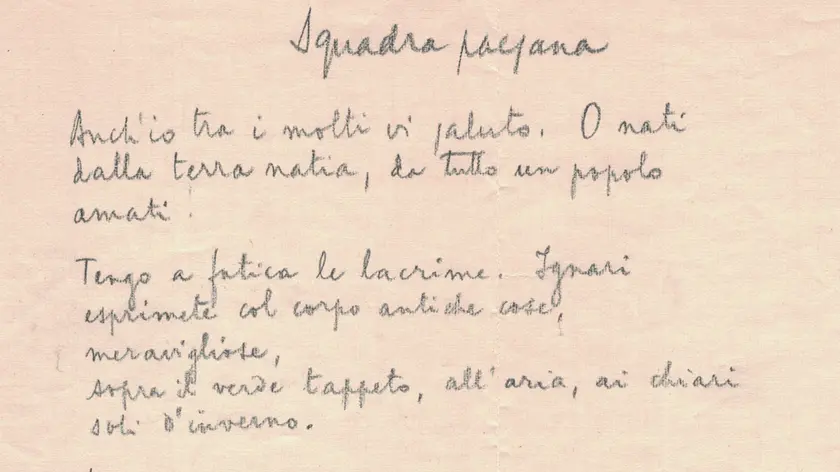 Squadra paesana
Anch'io tra i molti vi saluto. O nati
dalla terra natia, da tutto un popolo
amati!
Tengo a fatica le lacrime. Ignari
esprimete col corpo antiche cose,
meravigliose,
sopra il verde tappeto, all'aria, ai chiari
soli d'inverno.